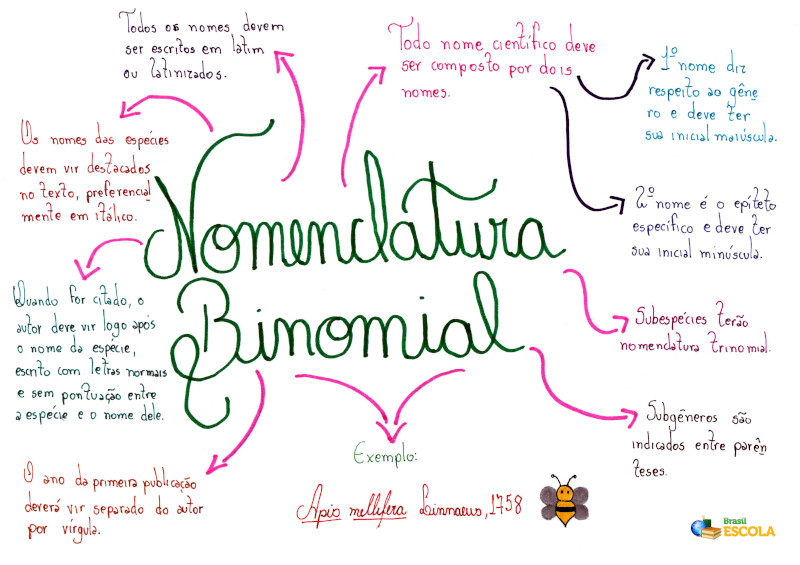 Todos os nomes devem
ser escritos em latim
ou latinizados.
Todo nome científico deve
ser composto por dois
nomes.
1º nome diz
respeito ao gêne
ro e deve ter
sua inicial maiúscula.
2º nome é o epíteto
específico e deve ter
sua inicial minúscula.
Os nomes das espécies
devem vir destacados
no texto, preferencial
mente em itálico.
Nomenclatura
Binomial
Quando for citado, o
autor deve vir logo após
o nome da espécie,
escrito com letras normais
e sem pontuação entre
a espécie e o nome dele.
Subespécies terão
nomenclatura trinomial.
Subgêneros são
indicados entre parên
teses.
O ano da primeira publicação
deverá vir separado do autor
por vírgula.
Exemplo:
Apis mellifera Linnaeus, 1758
Brasil
ESCOLA